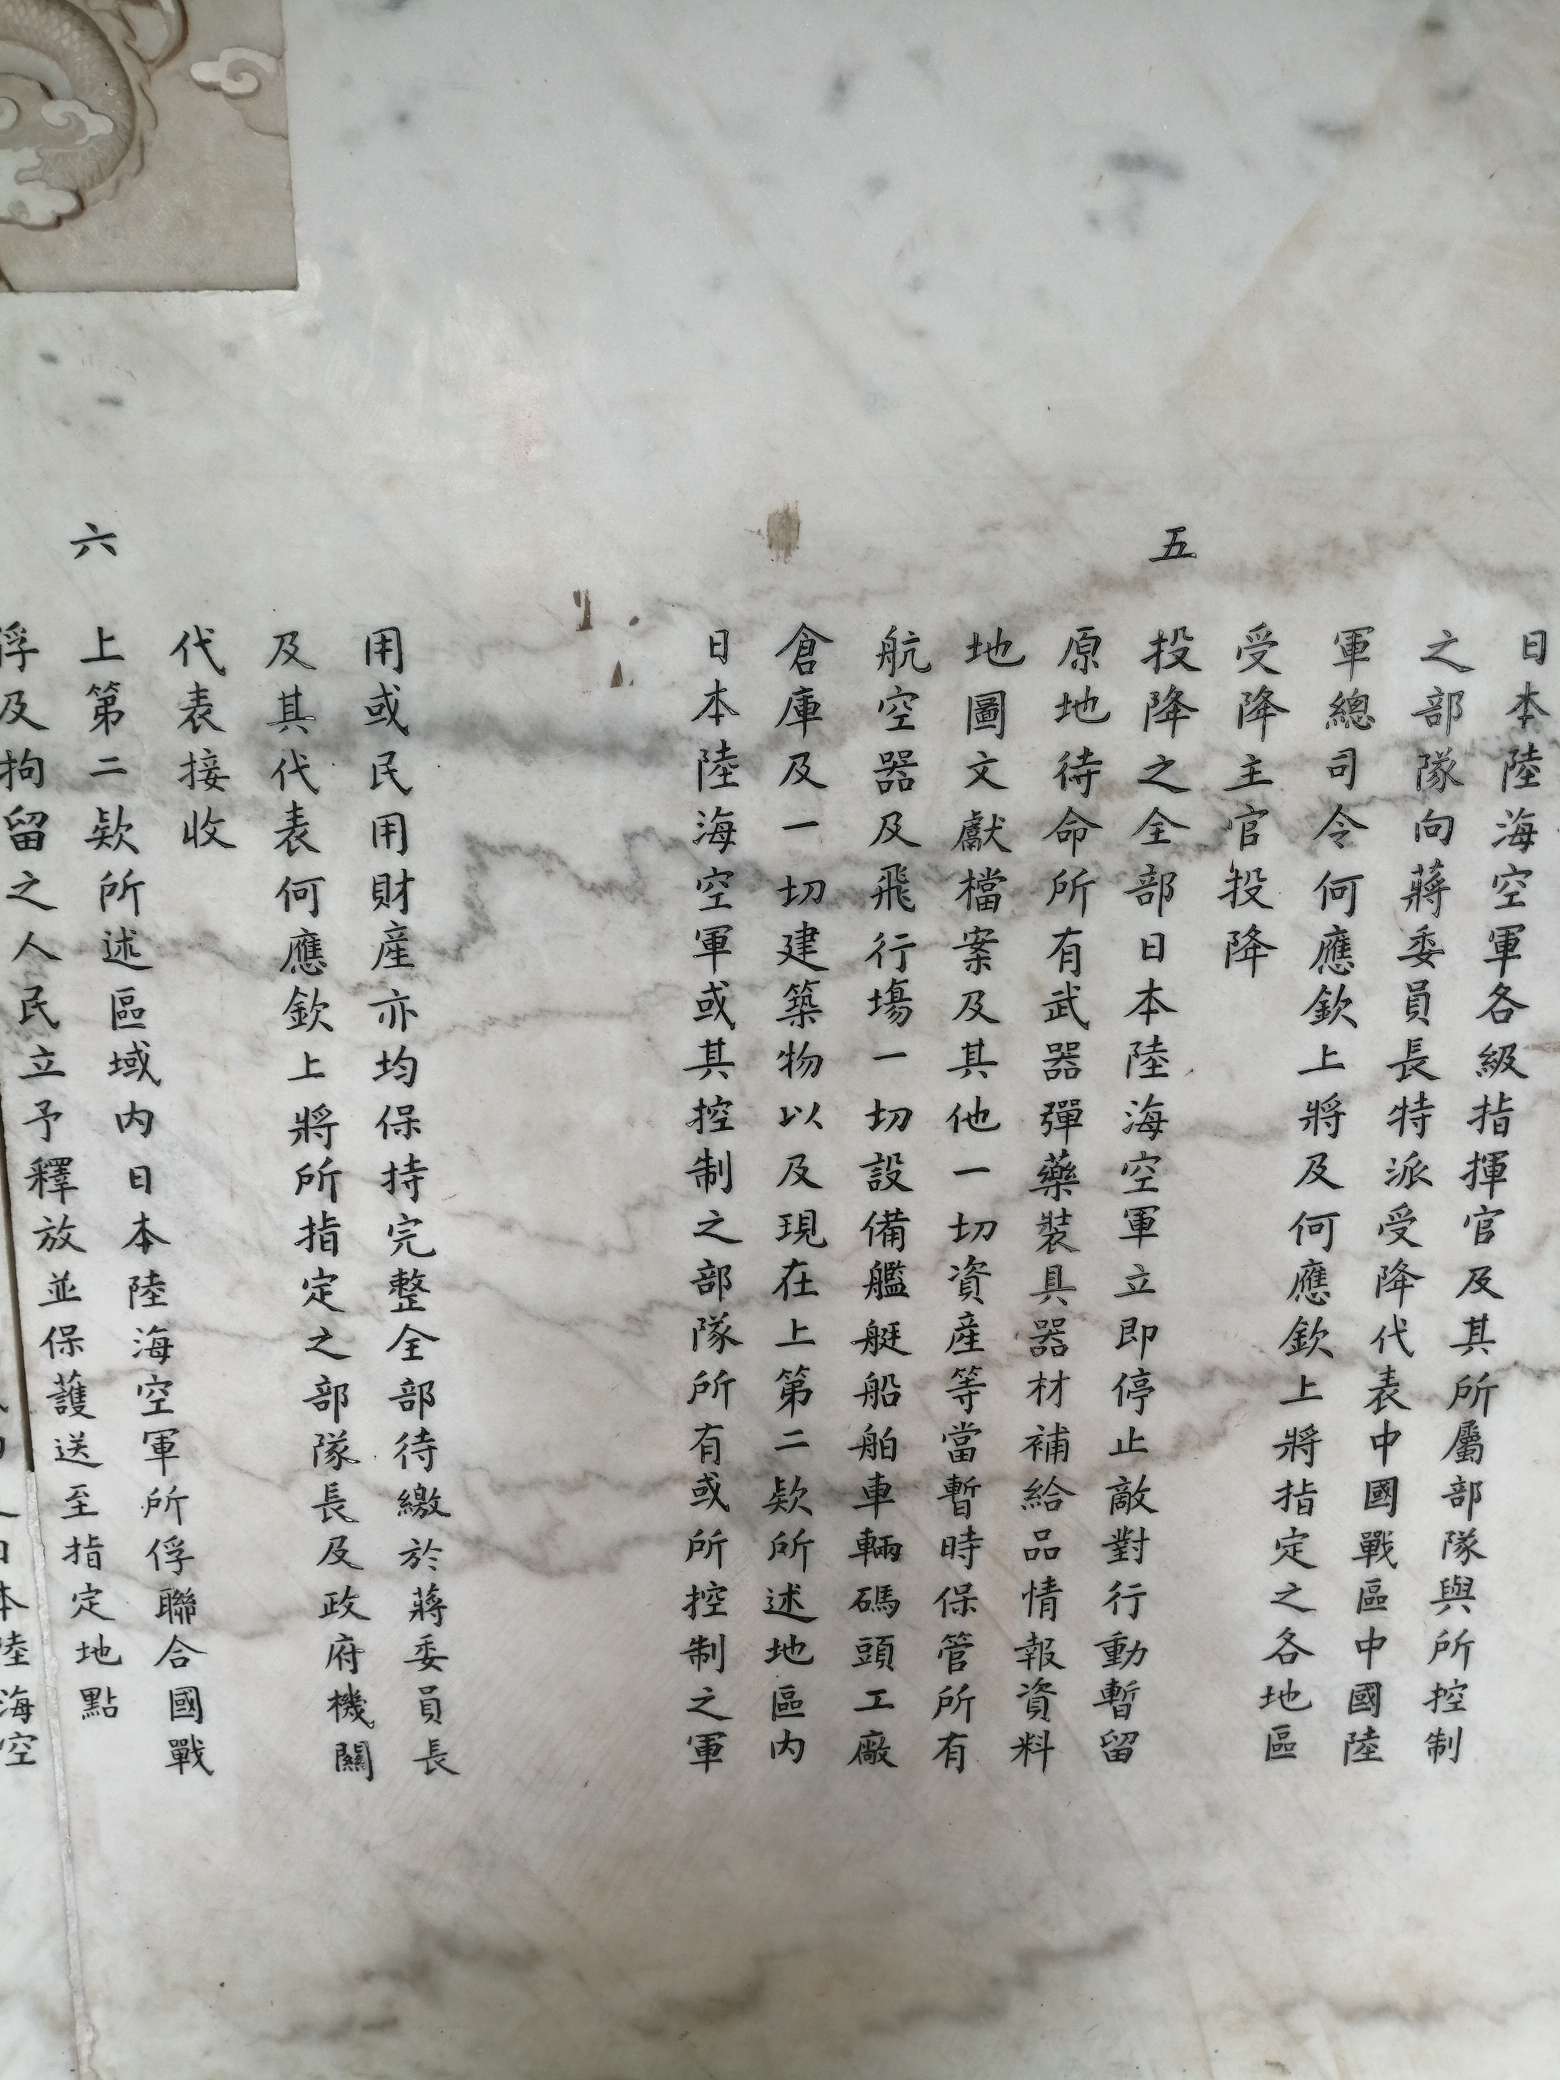 日本陸海空軍各級指揮官及其所屬部隊與所控制
之部隊向蔣委員長特派受降代表中國戰區中國陸
軍總司令何應欽上將及何應欽上將指定之各地區
受降主官投降
五
投降之全部日本陸海空軍立即停止敵對行動暫留
原地待命所有武器彈藥裝具器材補給品情報資料
地圖文獻檔案及其他一切資產等當暫時保管所有
航空器及飛行場一切設備艦艇船舶車輛碼頭工廠
倉庫及一切建築物以及現在上第二欵所述地區內
日本陸海空軍或其控制之部隊所有或所控制之軍
用或民用財產亦均保持完整全部待繳於蔣委員長
及其代表何應欽上將所指定之部隊長及政府機關
代表接收
六
上第二欵所述區域內日本陸海空軍所俘聯合國戰
俘及拘留之人民立予釋放並保護送至指定地點
日本陸海空